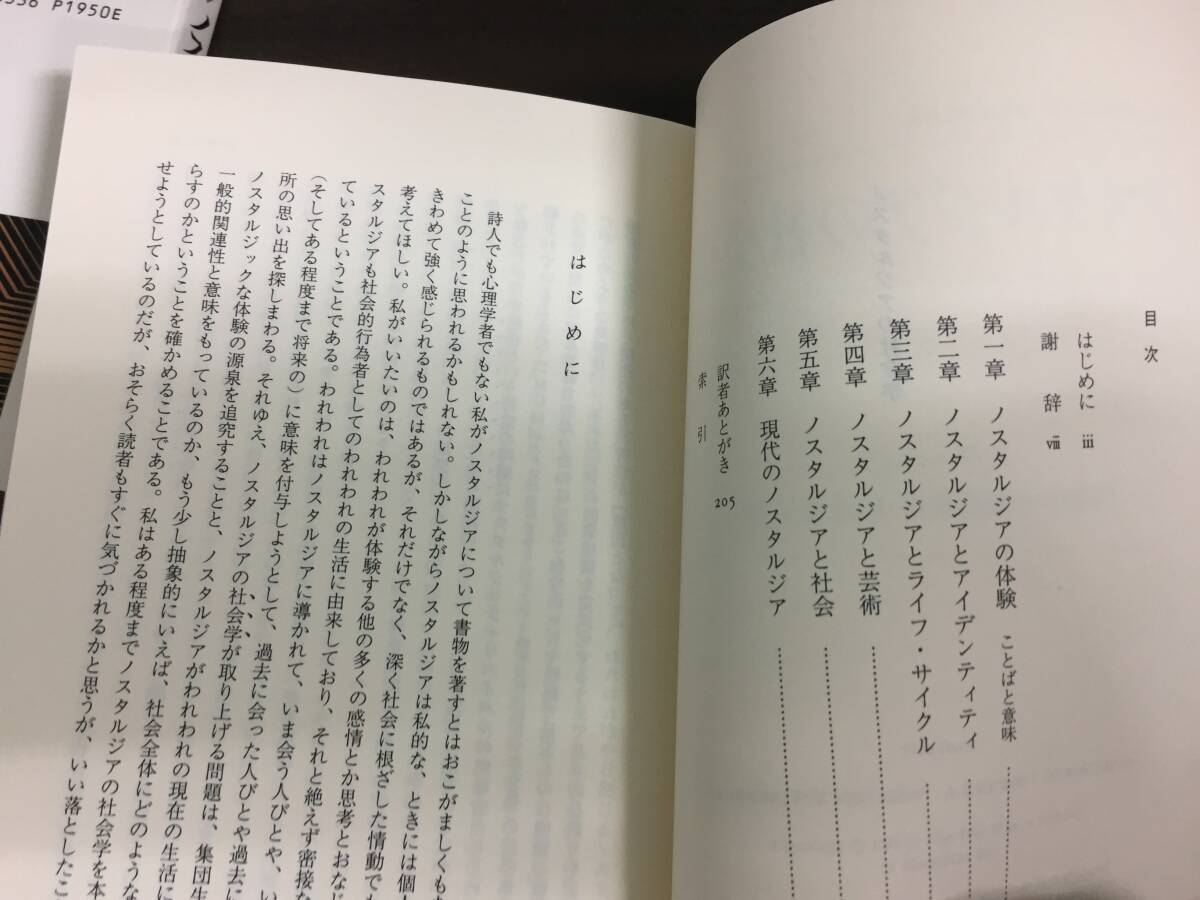 P1950E
目次
はじめに ⅲ
謝辞 ⅷ
第一章 ノスタルジアの体験 ことばと意味
第二章 ノスタルジアとアイデンティティ
第三章 ノスタルジアとライフ・サイクル
第四章 ノスタルジアと芸術
第五章 ノスタルジアと社会
第六章 現代のノスタルジア
訳者あとがき 205
索引
はじめに
詩人でも心理学者でもない私がノスタルジアについて書物を著すとはおこがましくも
ことのように思われるかもしれない。しかしながらノスタルジアは私的な、ときには個
きわめて強く感じられるものではあるが、それだけでなく、深く社会に根ざした情動で
考えてほしい。私がいいたいのは、われわれが体験する他の多くの感情とか思考とおなじ
スタルジアも社会的行為者としてのわれわれの生活に由来しており、それと絶えず密接な
ているということである。われわれはノスタルジアに導かれて、いま会う人びとや、い
(そしてある程度まで将来の)に意味を付与しようとして、過去に会った人びとや過去に
所の思い出を探しまわる。それゆえ、ノスタルジアの社会学が取り上げる問題は、集団生
ノスタルジックな体験の源泉を追究することと、ノスタルジアがわれわれの現在の生活に
一般的関連性と意味をもっているのか、もう少し抽象的にいえば、社会全体にどのような
らすのかということを確かめることである。私はある程度までノスタルジアの社会学を本
せようとしているのだが、おそらく読者もすぐに気づかれるかと思うが、いい落としたこ